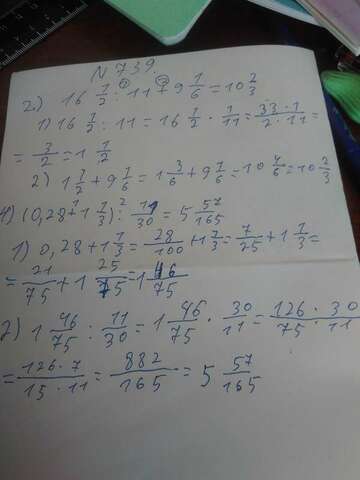 N 739.
2.) 16 1/2 : 11 + 9 1/6 = 10 2/3
1) 16 1/2 : 11 = 16 1/2 · 1/11 = 33 · 1/2 · 11 =
= 3/2 = 1 1/2
2) 1 1/2 + 9 1/6 = 1 3/6 + 9 1/6 = 10 4/6 = 10 2/3
4) (0,28 + 1 1/3) : 11/30 = 5 57/165
1) 0,28 + 1 1/3 = 28/100 + 1 1/3 = 7/25 + 1 1/3 =
= 21/75 + 1 25/75 = 1 46/75
2) 1 46/75 : 11/30 = 1 46/75 · 30/11 = 126 · 30/75 · 11
= 126 · 7/15 · 11 = 882/165 = 5 57/165